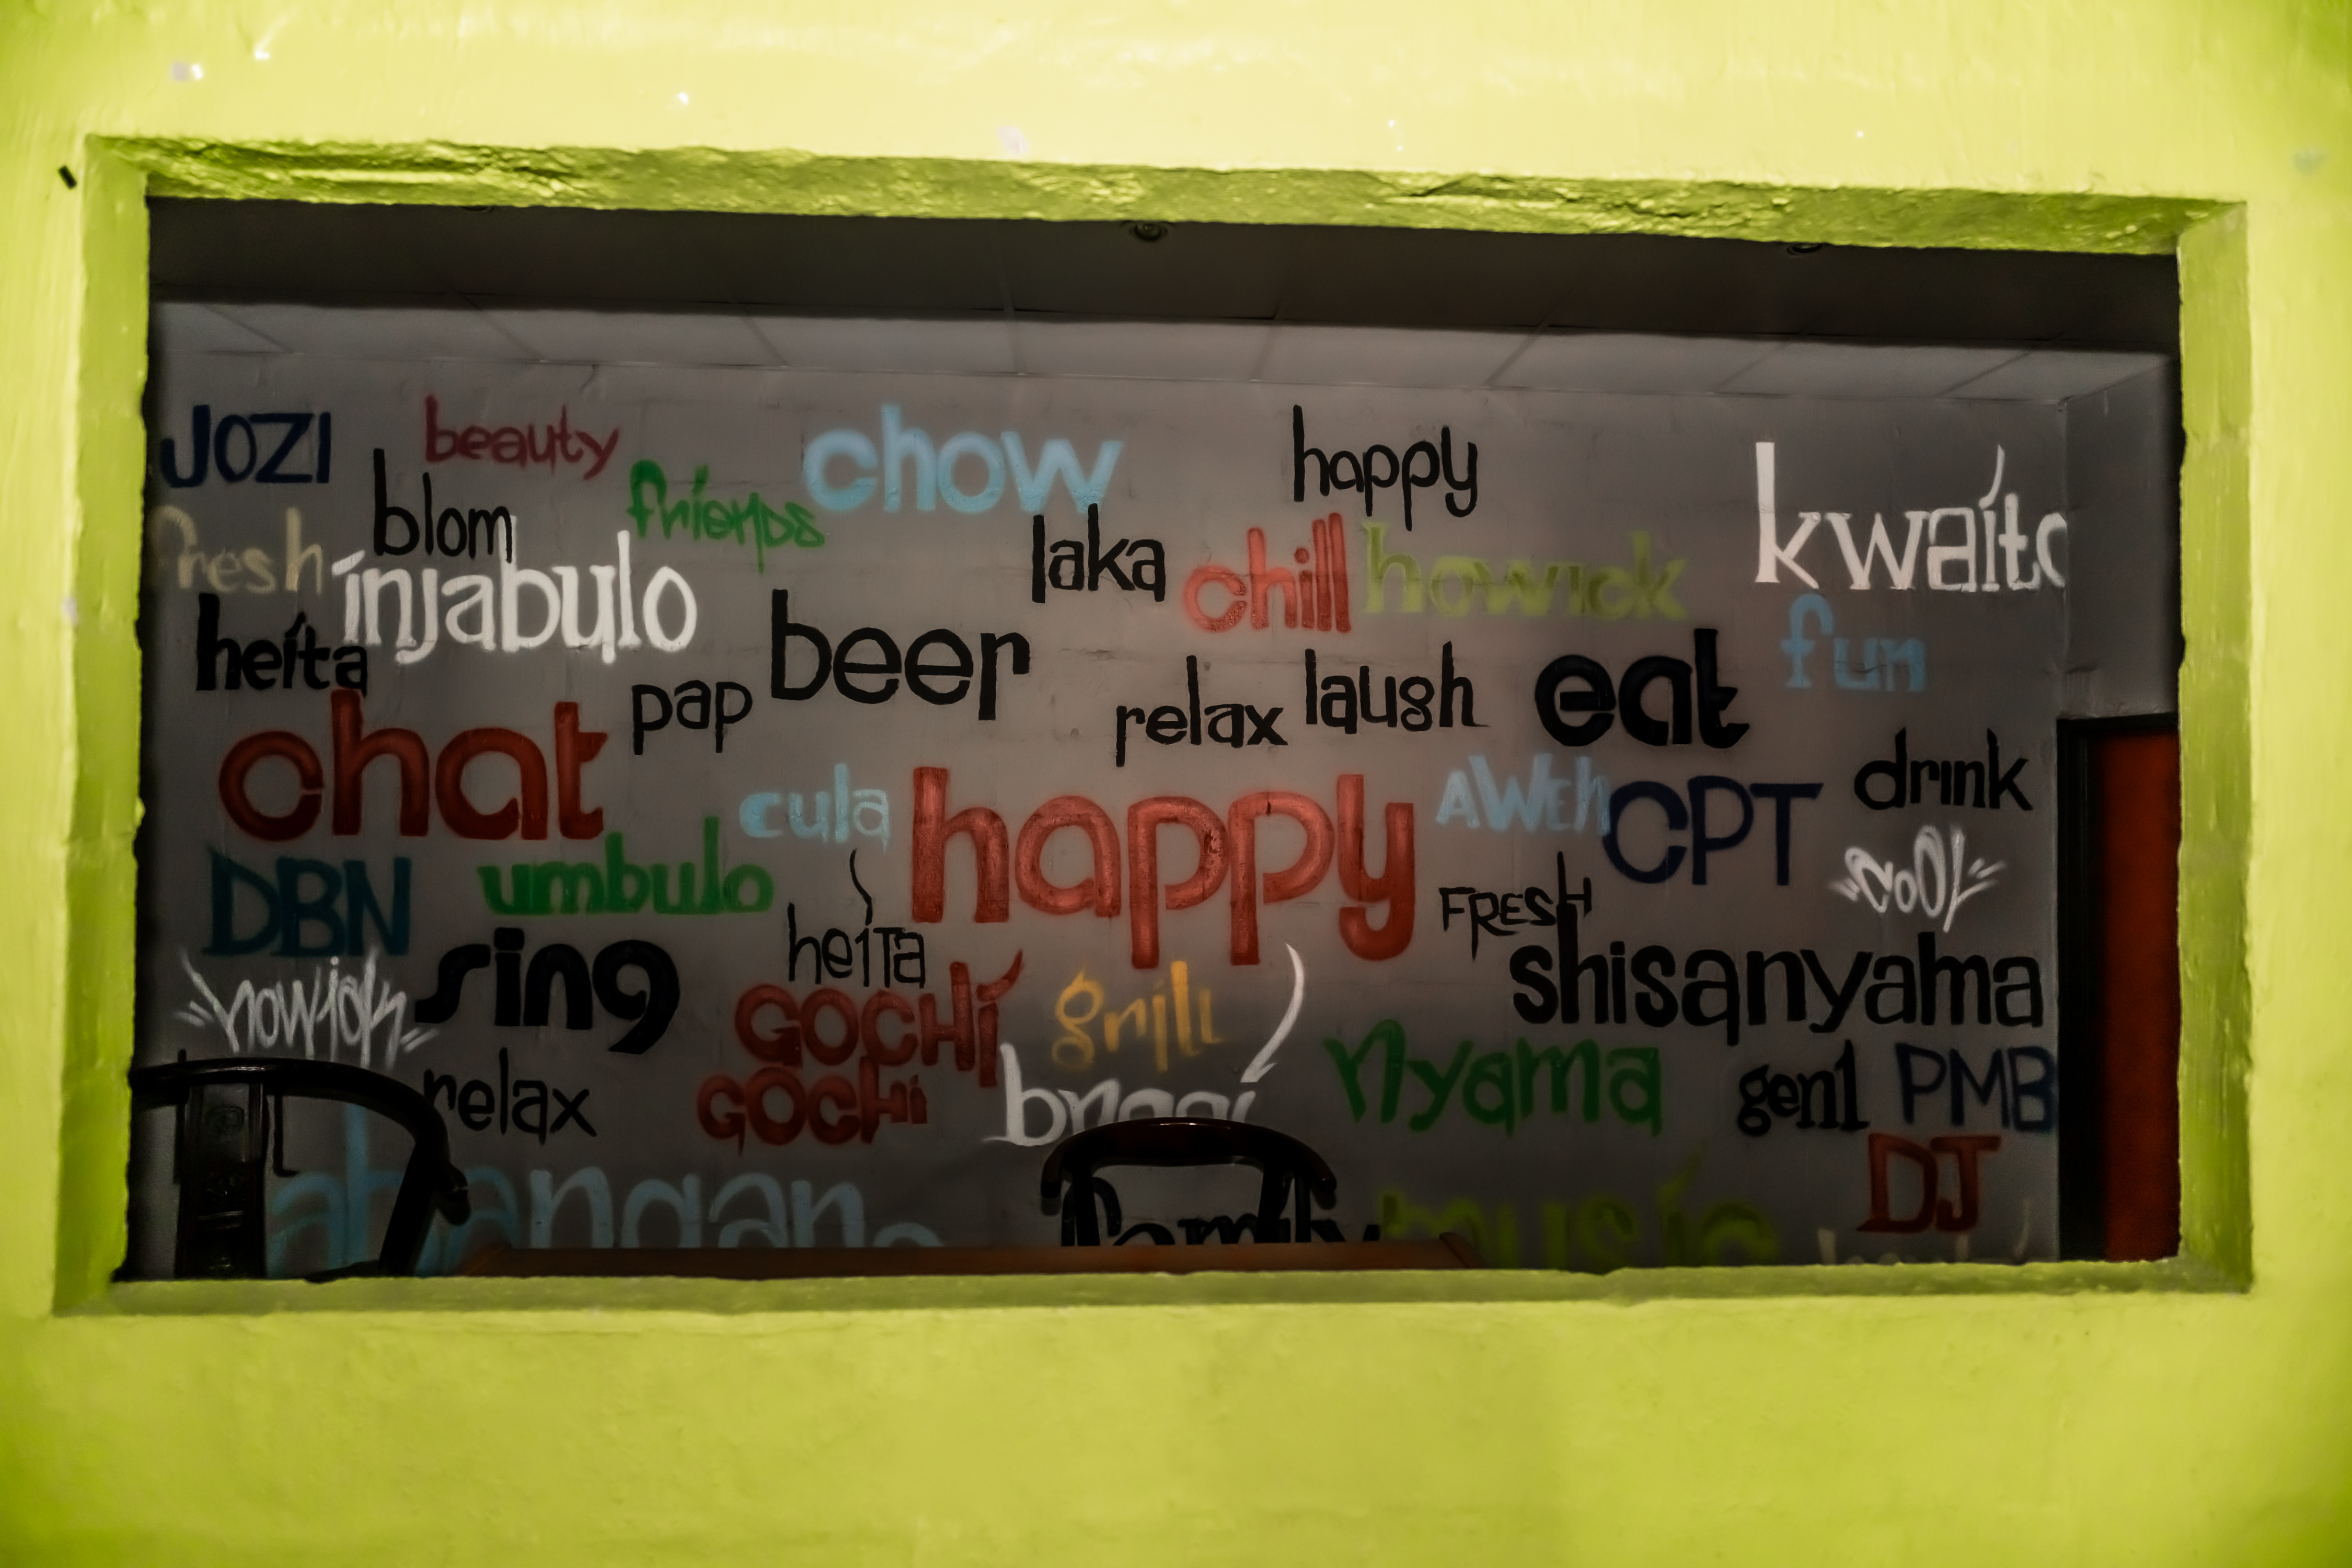 JOZI
beauty
chow
happy
kwaito
blom
friends
fresh
injabulo
laka
chill
howick
heita
beer
fun
pap
relax
laugh
eat
chat
drink
cula
happy
AWEh
CPT
DBN
umbulo
cool
heiTa
FRESH
sing
shisanyama
howick
GOCHi
grill
relax
GOCHi
braai
nyama
gen1
PMB
DJ
family
music